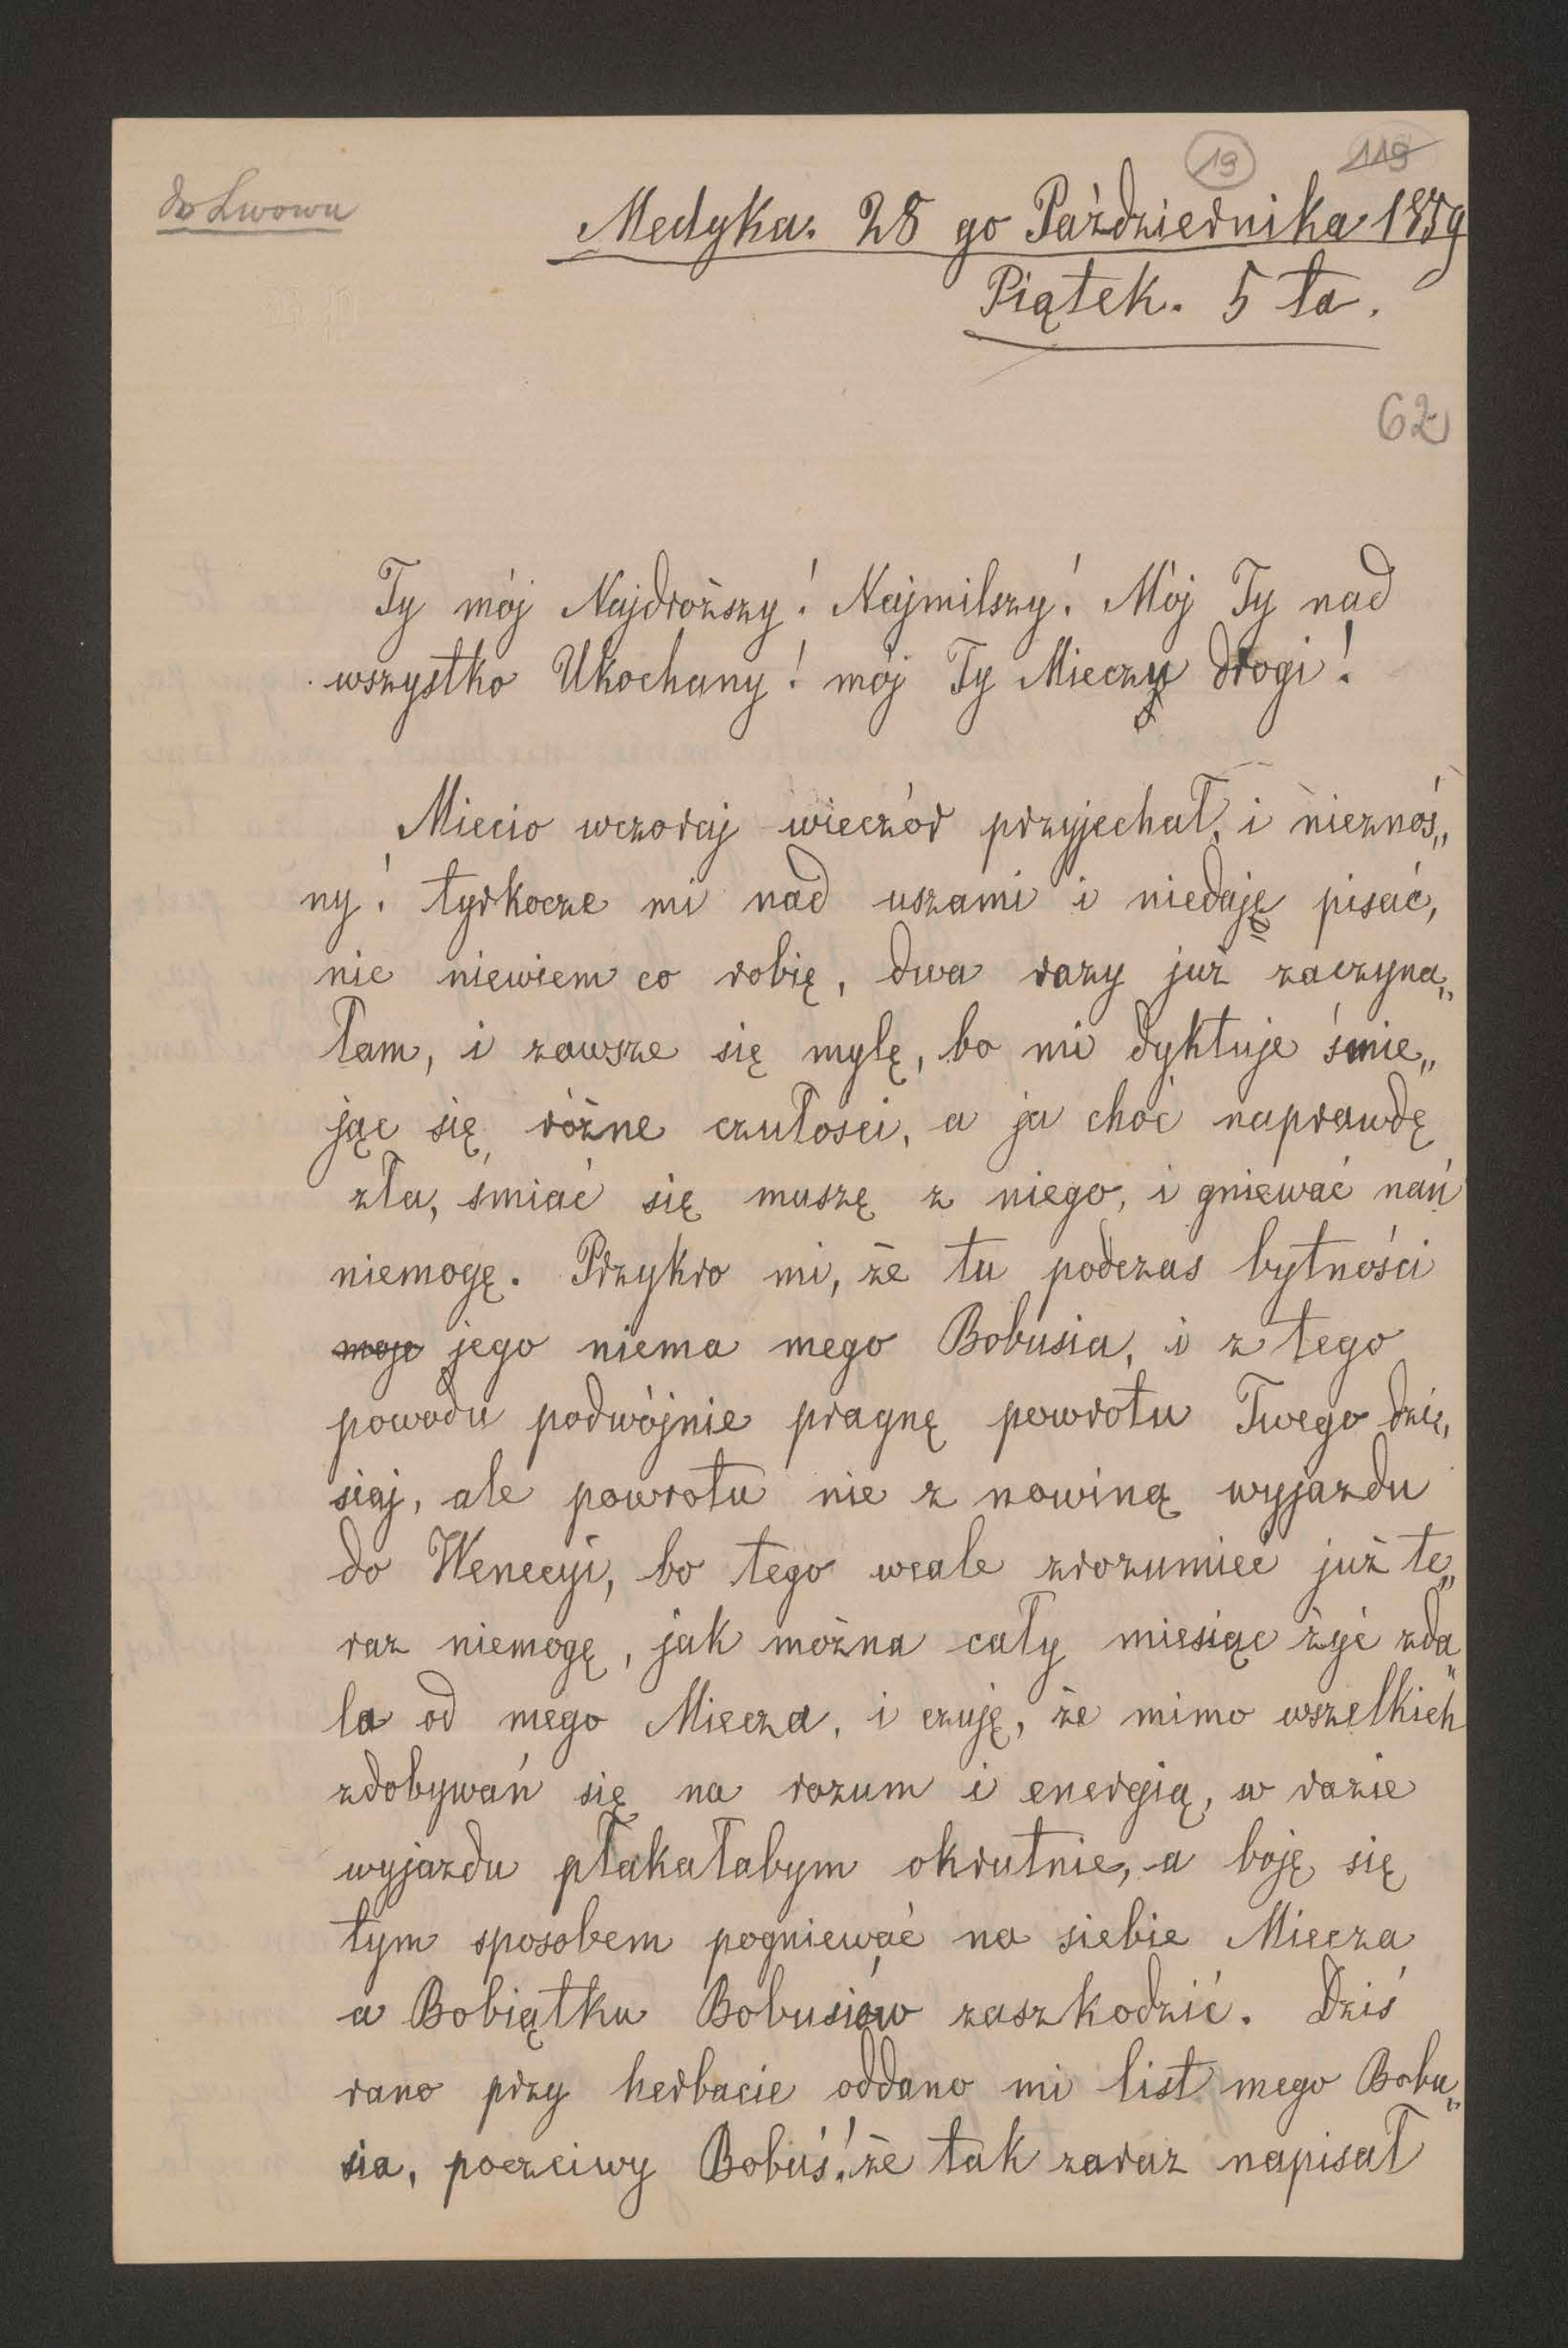 19 119
do Lwowa
Medyka. 28 go Października 1859
Piątek. 5 ta.
62
Ty mój Najdroższy! Najmilszy! Mój Ty nad
wszystko Ukochany! mój Ty Mieczu drogi!
Miecio wczoraj wieczór przyjechał, i nieznoś„
ny! tyrkocze mi nad uszami i niedaję pisać,
nic niewiem co robię, dwa razy już zaczyna„
łam, i zawsze się mylę, bo mi dyktuje śmie„
jąc się, różne czułości, a ja choć naprawdę
zła, śmiać się muszę z niego, i gniewać nań
niemogę. Przykro mi, że tu podczas bytności
moje jego niema mego Bobusia, i z tego
powodu podwójnie pragnę powrotu Twego dzi„
siaj, ale powrotu nie z nowiną wyjazdu
do Wenecyi, bo tego wcale zrozumieć już te„
raz niemogę, jak można cały miesiąc żyć zda„
la od mego Miecza, i czuję, że mimo wszelkich
zdobywań się na rozum i energią, w razie
wyjazdu płakałabym okrutnie, a boję się
tym sposobem pogniewać na siebie Miecza
a Bobiątku Bobusiów zaszkodzić. Dziś
rano przy herbacie oddano mi list mego Bobu„
sia, poczciwy Bobuś! że tak zaraz napisał